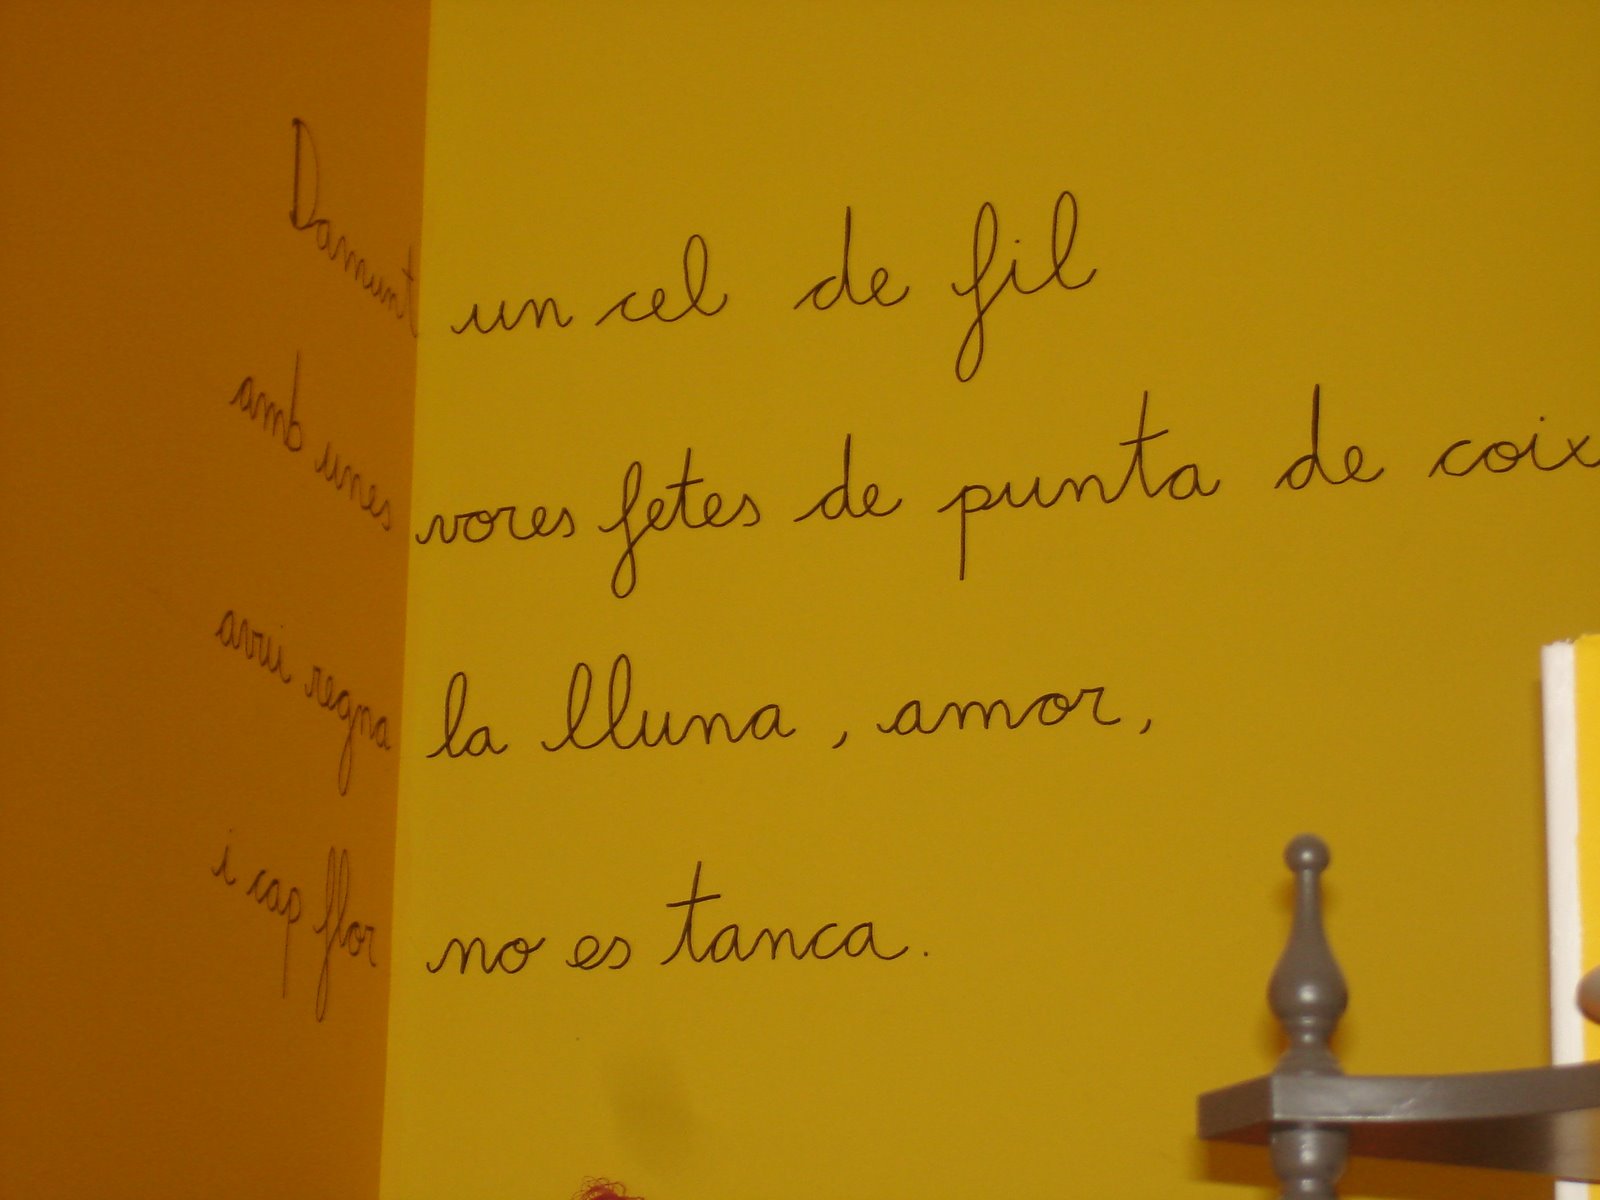 Damunt un cel de fil
amb unes vores fetes de punta de coix
avui regna la lluna, amor,
i cap flor no es tanca.